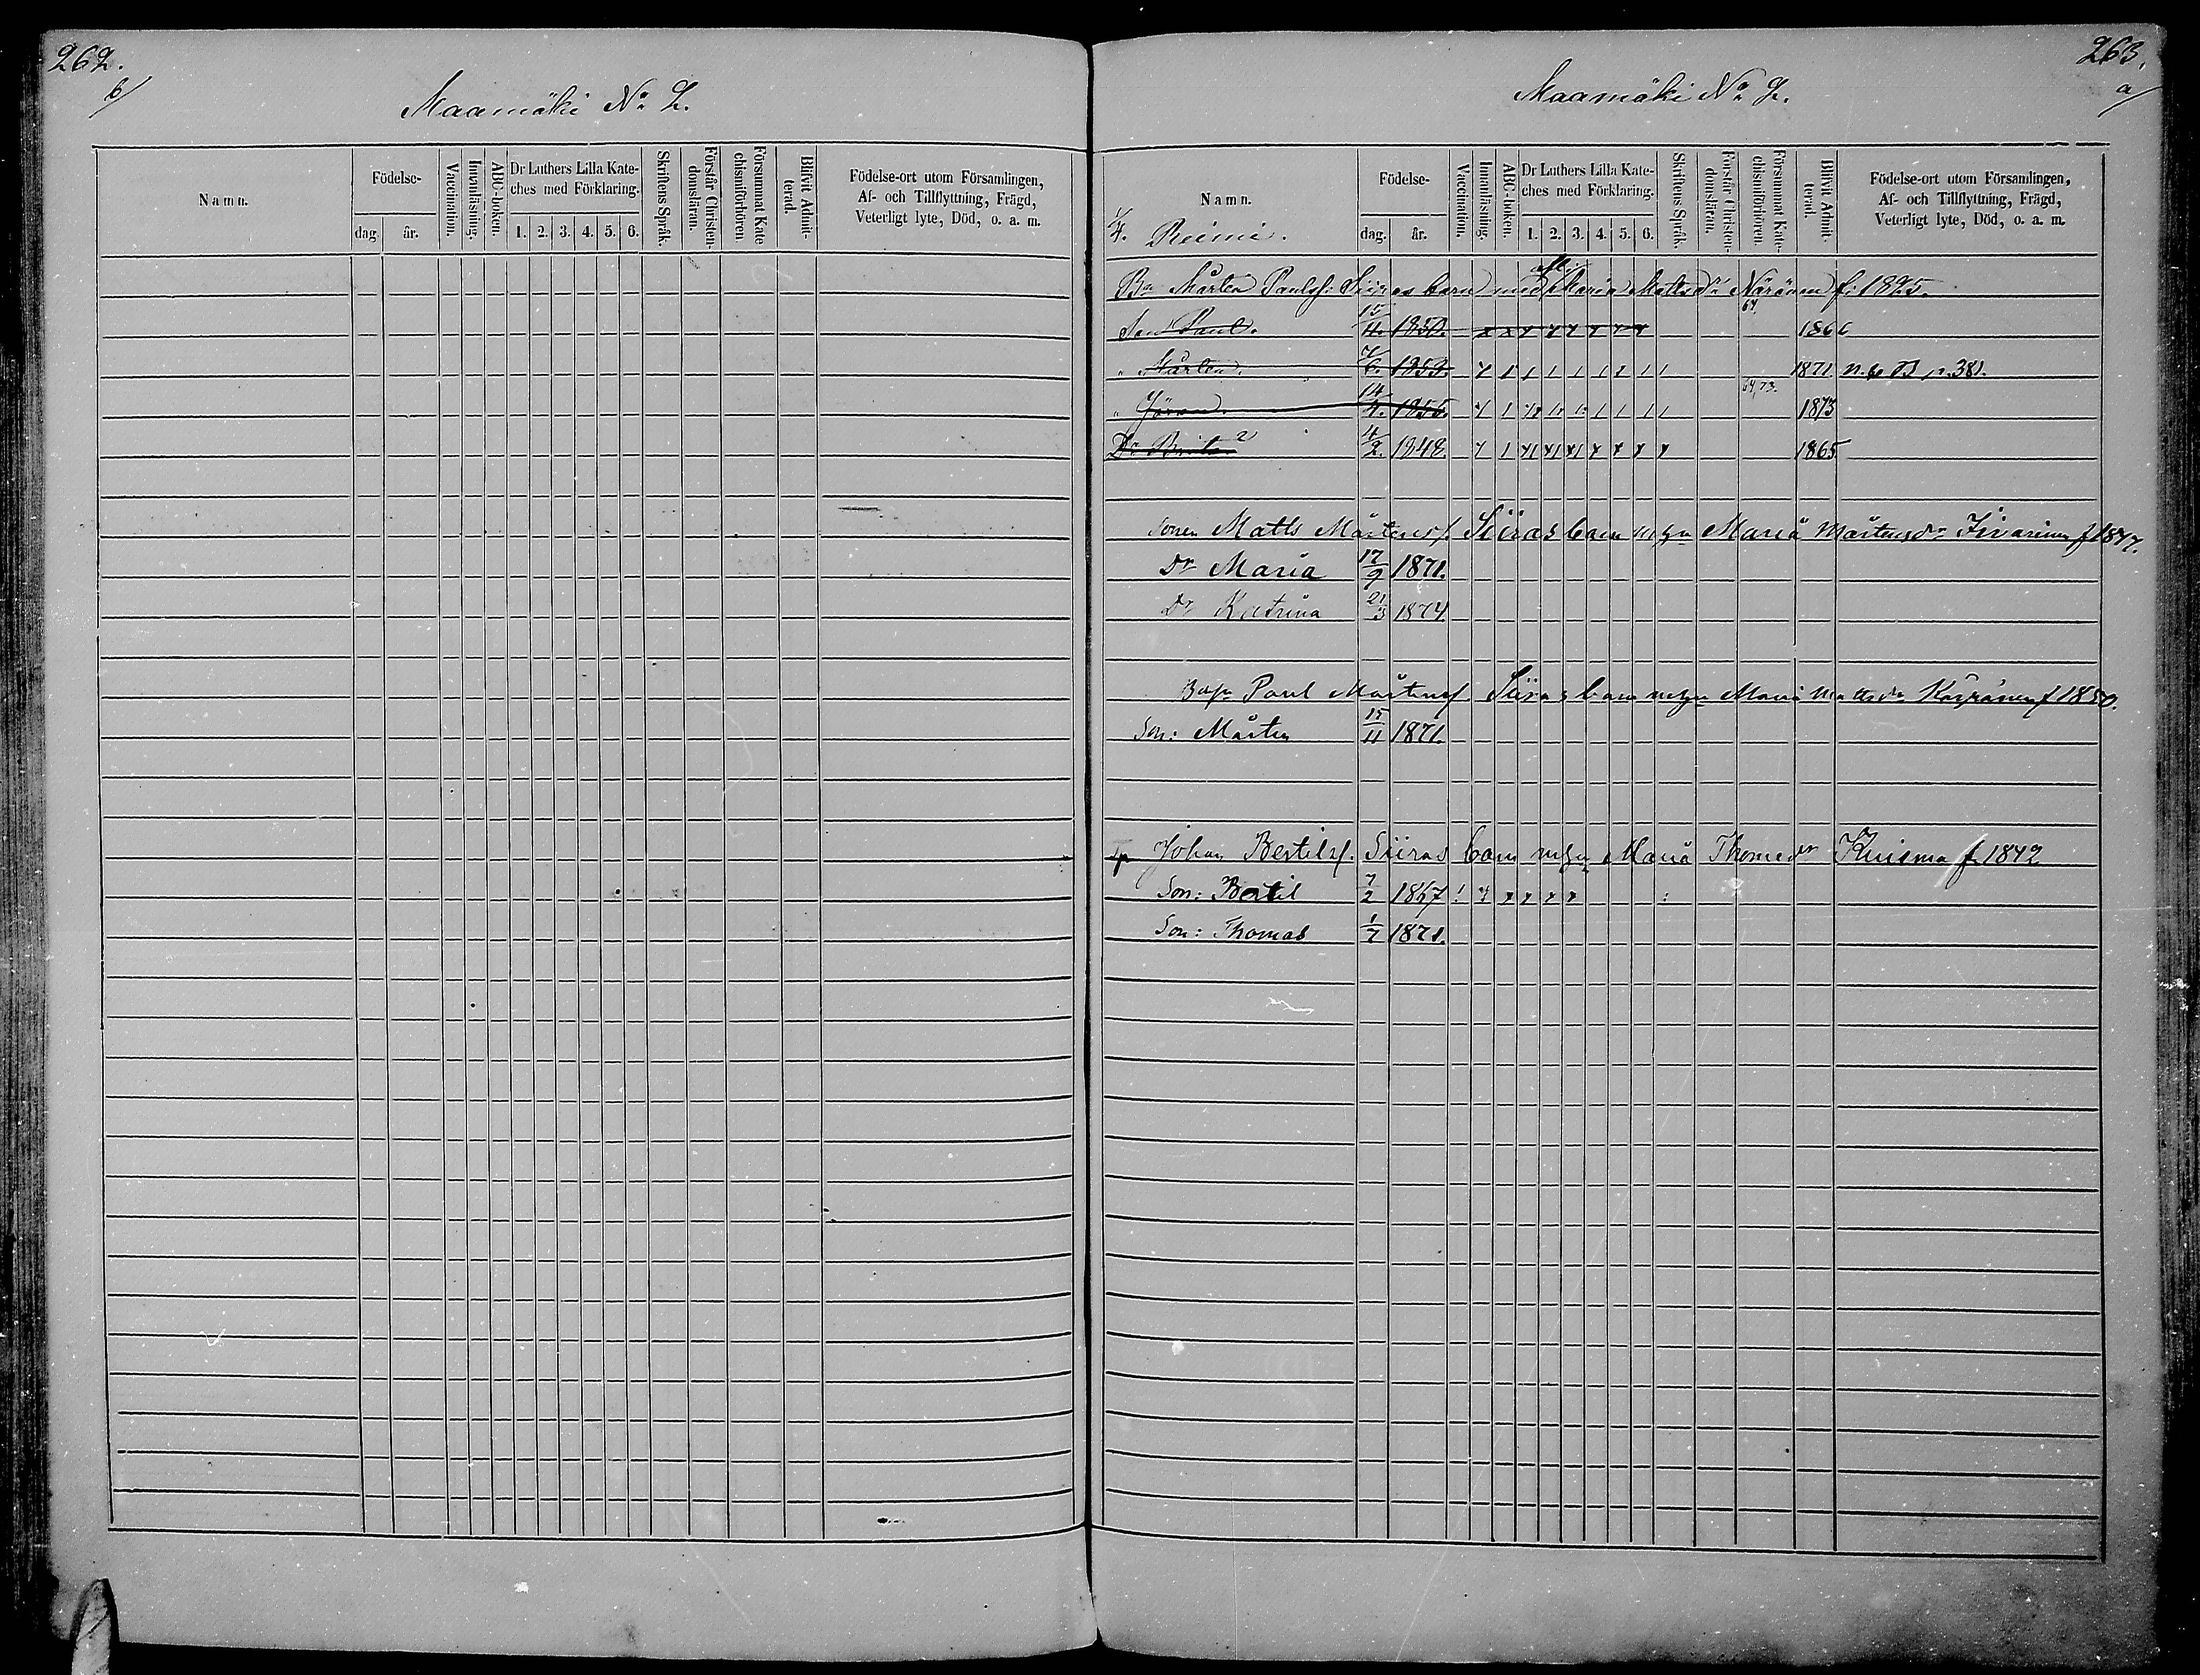 262.
b/
Maamäki No 2.
Namn.
Födelse-
dag.
år.
Vaccination.
Innanläsning.
ABC-boken.
Dr Luthers Lilla Kate-
ches med Förklaring.
1. 2. 3. 4. 5. 6.
Skriftens Språk.
Förstår Christen-
domsläran.
Försummat Kate
chismiförhören.
Blifvit Admit-
terad.
Födelse-ort utom Församlingen,
Af- och Tillflyttning, Frägd,
Veterligt lyte, Död, o. a. m.
263.
a/
Maamäki No 2.
Namn.
Reimi.
Födelse-
dag.
år.
Vaccination.
Innanläsning.
ABC-boken.
Dr Luthers Lilla Kate-
ches med Förklaring.
1. 2. 3. 4. 5. 6.
Skriftens Språk.
Förstår Christen-
domsläran.
Försummat Kate-
chismiförhören.
Blifvit Admit-
terad.
Födelse-ort utom Församlingen,
Af- och Tillflyttning, Frägd,
Veterligt lyte, Död, o. a. m.
Bn Mårten Paulss: Siiras barn med Maria Matts dr f: 1825.
Son Paul. 15/4. 1850. x x x x x x x x 64. 1866
" Mårten. 7/6. 1853. 1871 p. 381.
" Göran. 14/4. 1855. 64, 73. 1873
Dr Brita 4/2. 1848. 1865
Sonen Matts Mårtenss. Siiras barn m hu Maria Mårtensdr f 1847.
Dr Maria 17/9 1871.
Dr Katrina 21/3 1874.
Paul Mårtenss. Siiras barn m hu Maria Mattsdr f 1850.
Son: Mårten 15/11 1871.
Johan Bertilss. Siiras barn m hu Maria Thomasdr Kuisma f 1842
Son: Bertil 7/2 1867 x x x x x
Son: Thomas 1/7 1871.